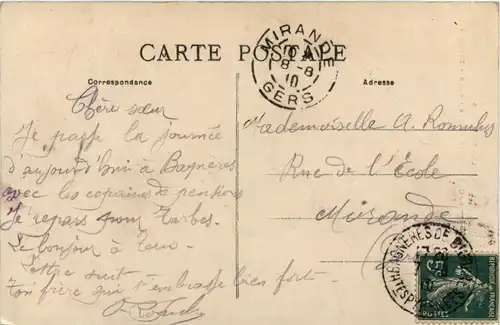 CARTE POSTALE
MIRANDE
8-8
10
GERS
Correspondance
Adresse
Chère sœur
Je passe la journée
d'aujourd'hui à Bagnères
avec les copains de pension
Je repars pour Tarbes.
Le bonjour à tous
Lettre suit
Ton frère qui t'embrasse bien fort
Mademoiselle A. Romulus
Rue de l'École
Mirande
BAGNÈRES DE
POSTES